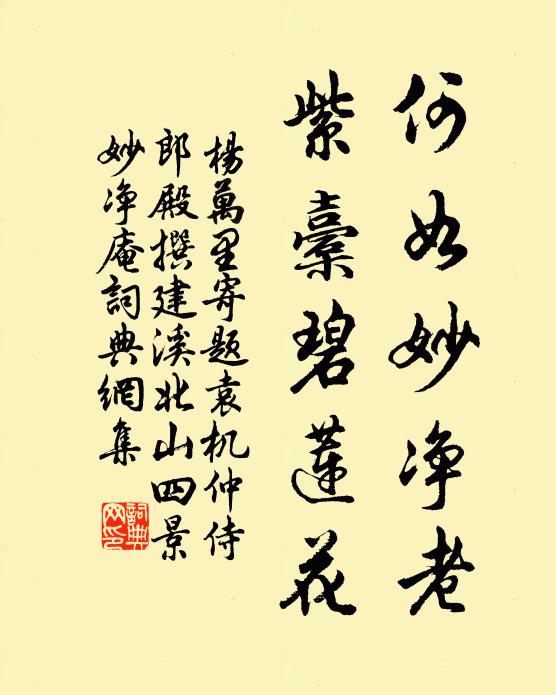 何如妙净老
紫橐碧莲花
楊萬里寄题袁机仲侍
郎殿撰建溪北山四景
妙净庵詞典網集
詞典网印